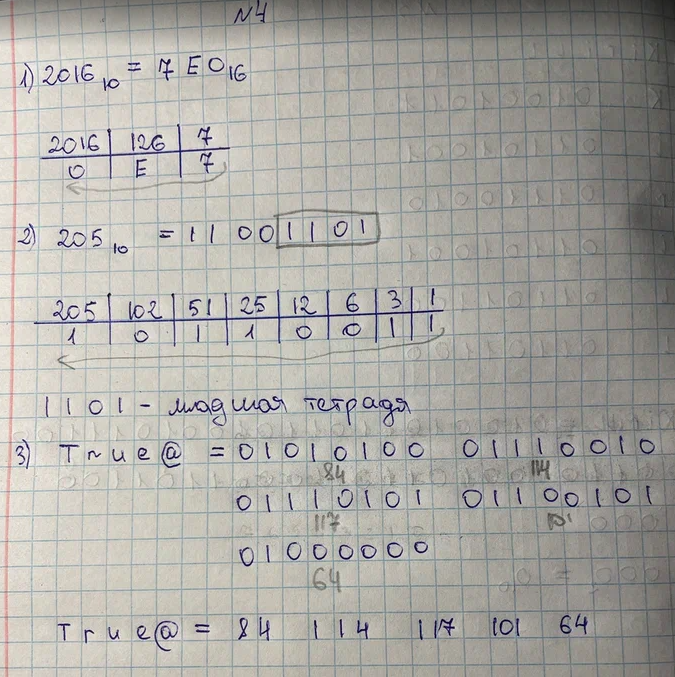 №4
1) 2016₁₀ = 7 E0₁₆
2016 | 126 | 7
0 | E | 7
2) 205₁₀ = 11001101
205 | 102 | 51 | 25 | 12 | 6 | 3 | 1
1 | 0 | 1 | 1 | 0 | 0 | 1 | 1
1101 - младшая тетрадя
3) True@ = 01010100 01110010
84 114
01110101 01100101
117 101
01000000
64
True@ = 84 114 117 101 64